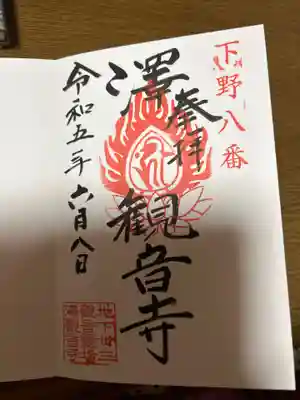 下野八番
奉拝
澤観音寺
令和五年六月八日